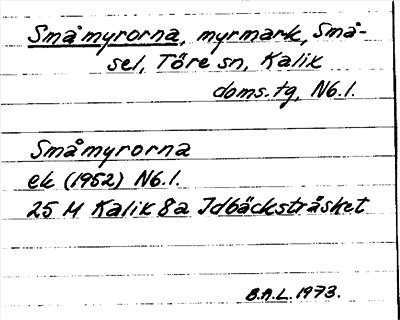 Småmyrorna, myrmark, Små-
sel, Töre sn, Kalix
doms.tg, Nb.l.
Småmyrorna
ek (1952) Nb.l.
25 M Kalix 8a Idbäcksträsket
B.A.L. 1973.